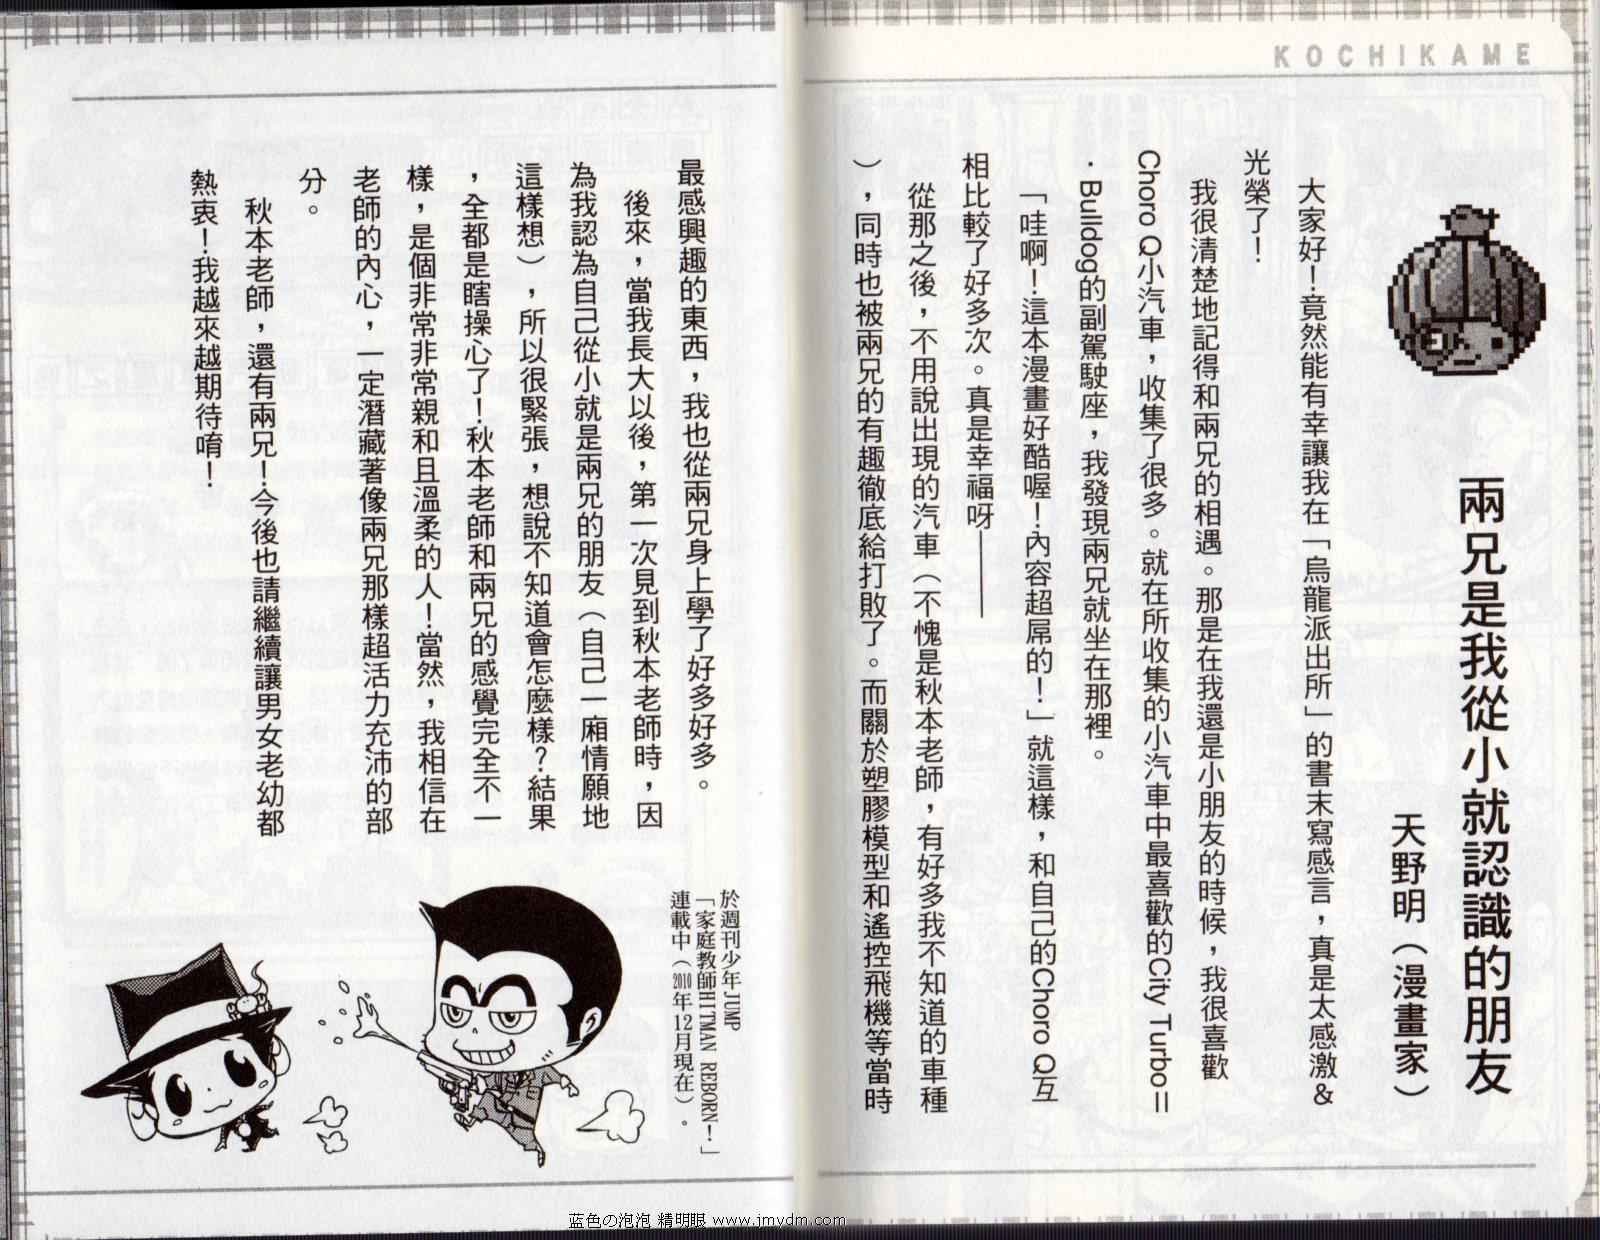 KOCHIKAME
兩兄是我從小就認識的朋友
天野明（漫畫家）
大家好！竟然能有幸讓我在「烏龍派出所」的書末寫感言，真是太感激&
光榮了！
我很清楚地記得和兩兄的相遇。那是在我還是小朋友的時候，我很喜歡
Choro Q小汽車，收集了很多。就在所收集的小汽車中最喜歡的City Turbo II
．Bulldog的副駕駛座，我發現兩兄就坐在那裡。
「哇啊！這本漫畫好酷喔！內容超屌的！」就這樣，和自己的Choro Q互
相比較了好多次。真是幸福呀———
從那之後，不用說出現的汽車（不愧是秋本老師，有好多我不知道的車種
），同時也被兩兄的有趣徹底給打敗了。而關於塑膠模型和遙控飛機等當時
最感興趣的東西，我也從兩兄身上學了好多好多。
後來，當我長大以後，第一次見到秋本老師時，因
為我認為自己從小就是兩兄的朋友（自己一廂情願地
這樣想），所以很緊張，想說不知道會怎麼樣？結果
，全都是瞎操心了！秋本老師和兩兄的感覺完全不一
樣，是個非常非常親和且溫柔的人！當然，我相信在
老師的內心，一定潛藏著像兩兄那樣超活力充沛的部
分。
秋本老師，還有兩兄！今後也請繼續讓男女老幼都
熱衷！我越來越期待唷！
於週刊少年JUMP
「家庭教師HITMAN REBORN！」
連載中（2010年12月現在）。
蓝色の泡泡 精明眼 www.jmydm.com